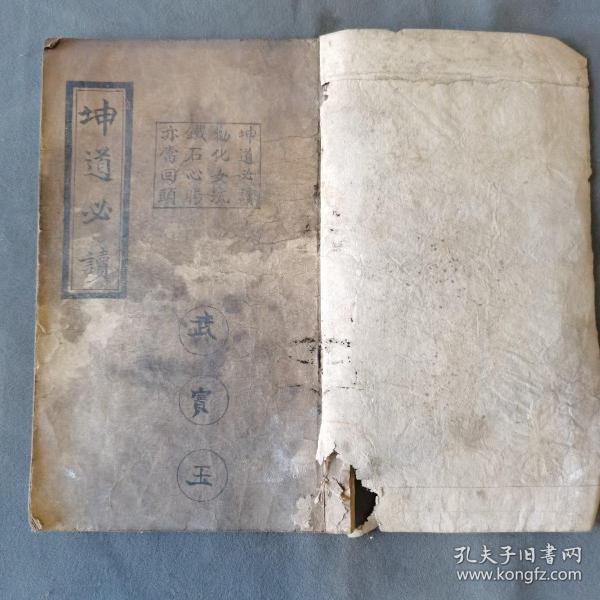 坤道必讀
坤道必讀
勸化女流
鐵石心腸
亦當回頭
武
寳
玉
孔夫子旧书网
www.kongfz.com